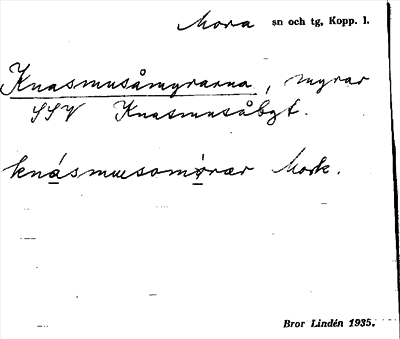 Mora sn och tg, Kopp. l.
Knasmusåmyrarna, myrar
SSV Knasmusåbgt.
knásmusomýrær Mork.
Bror Lindén 1935.